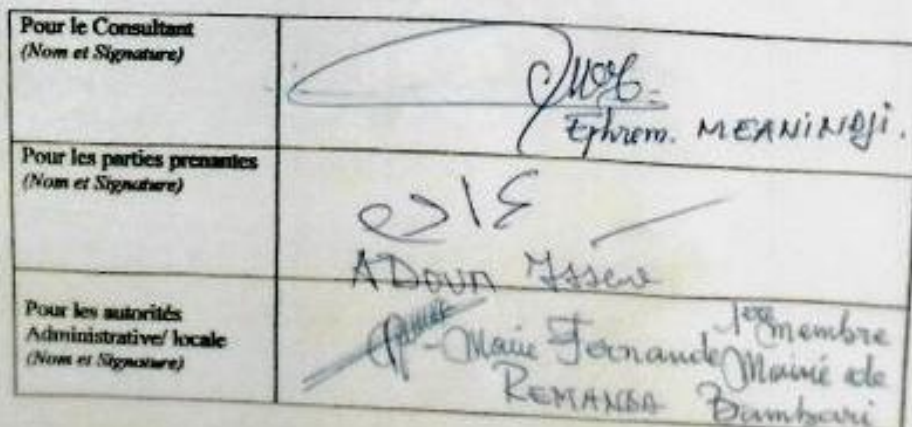 Pour le Consultant
(Nom et Signature)
Ephrem. MEANINDJI.
Pour les parties prenantes
(Nom et Signature)
ADOUM Issene
Pour les autorités
Administrative/ locale
(Nom et Signature)
Marie Fernande
REMANDA
1ere membre
Mairie de
Bambari